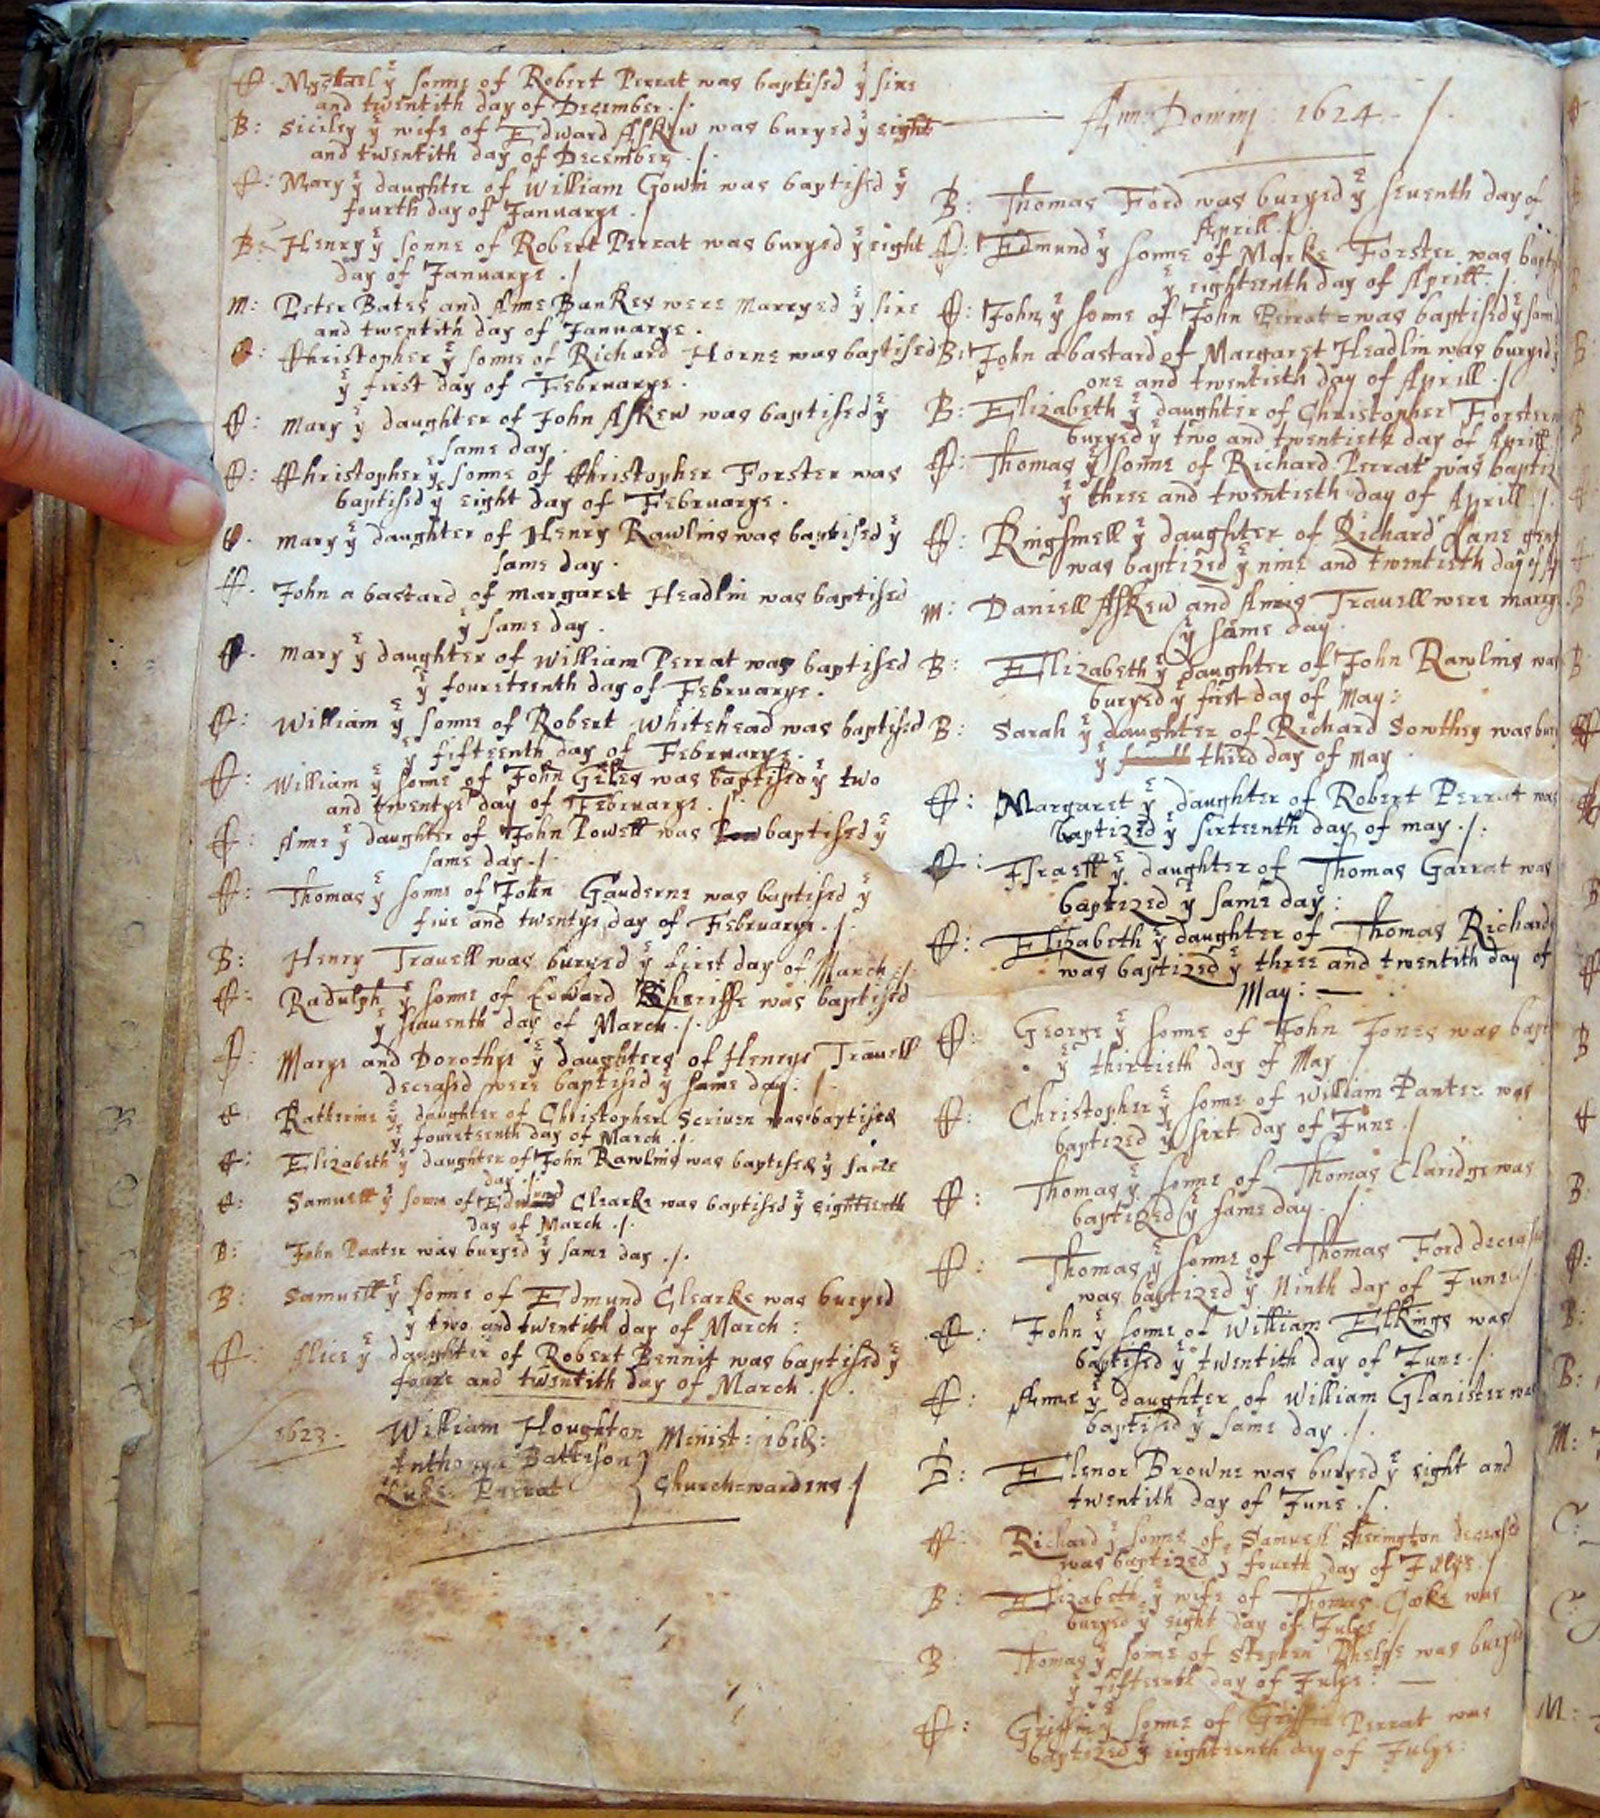 C. Mychael yͤ sonne of Robert Perrat was baptised yͤ sixe
and twentith day of December ./.
B: Siciley yͤ wife of Edward Askew was buryed yͤ eight
and twentith day of December ./.
C: Mary yͤ daughter of William Gowin was baptised yͤ
fourth day of Januarye ./
B: Henry yͤ sonne of Robert Perrat was buryed yͤ eight
day of Januarye ./
M: Peter Bates and Anne Bankes were marryed yͤ sixe
and twentith day of Januarye .
C: Christopher yͤ sonne of Richard Horne was baptised
yͤ first day of Februarye .
C: Mary yͤ daughter of John Askew was baptised yͤ
same day .
C: Christopher yͤ sonne of Christopher Forster was
baptised yͤ eight day of Februarye .
C. Mary yͤ daughter of Henry Rawlins was baptised yͤ
same day .
C. John a bastard of Margaret Headlin was baptised
yͤ same day .
C. Mary yͤ daughter of William Perrat was baptised
yͤ foureteenth day of Februarye .
C: William yͤ sonne of Robert Whitehead was baptised
yͤ fifteenth day of Februarye .
C: William yͤ sonne of John Geles was baptised yͤ two
and twentye day of Februarye ./.
C: Anne yͤ daughter of John Powell was baptised yͤ
same day ./.
C: Thomas yͤ sonne of John Gauderne was baptised yͤ
five and twentye day of Februarye ./.
B: Henry Travell was buryed yͤ first day of March ./.
C: Radulph yͤ sonne of Edward Sheriffe was baptised
yͤ seaventh day of March ./.
C: Marye and Dorothye yͤ daughters of Henrye Travell
deceased were baptised yͤ same day : /.
C: Katterine yͤ daughter of Christopher Scriven was baptised
yͤ foureteenth day of March ./.
C: Elizabeth yͤ daughter of John Rawlins was baptised yͤ same
day ./.
C: Samuell yͤ sonne of Edmund Clearke was baptised yͤ eighteenth
day of March ./.
B: John Panter was buryed yͤ same day ./.
B: Samuell yͤ sonne of Edmund Clearke was buryed
yͤ two and twentith day of March :
C: Alice yͤ daughter of Robert Bennit was baptised yͤ
foure and twentith day of March ./.
1623. William Houghton Minist: 1618:
Anthonye Batteson
Luke Perrat } Church=wardens /
Ann: Dominj : 1624 . /.
B: Thomas Ford was buryed yͤ seventh day of
Aprill ./.
C: Edmund yͤ sonne of Marke Forster was bapt
yͤ eighteenth day of Aprill ./.
C: John yͤ sonne of John Perrat = was baptised yͤ same
B: John a bastard of Margaret Headlin was buryed
one and twentieth day of Aprill ./
B: Elizabeth yͤ daughter of Christopher Forster
buryed yͤ two and twentieth day of Aprill
C: Thomas yͤ sonne of Richard Perrat was baptiz
yͤ three and twentieth day of Aprill ./.
C: Kingsmell yͤ daughter of Richard Lane gent
was baptized yͤ nine and twentieth day of Ap
M: Daniell Askew and Annis Travell were marry
yͤ same day .
B: Elizabeth yͤ daughter of John Rawlins was
buryed yͤ first day of May :
B: Sarah yͤ daughter of Richard Sowthey was bury
yͤ third day of May
C: Margaret yͤ daughter of Robert Perrat was
baptized yͤ sixteenth day of May ./.
C: Israell yͤ daughter of Thomas Garrat was
baptized yͤ same day :
C: Elizabeth yͤ daughter of Thomas Richards
was baptized yͤ three and twentith day of
May : —
C: George yͤ sonne of John Jones was bapt
yͤ thirtieth day of May /
C: Christopher yͤ sonne of William Panter was
baptized yͤ sixt day of June ./
C: Thomas yͤ sonne of Thomas Claridge was
baptized yͤ same day . /.
C: Thomas yͤ sonne of Thomas Ford deceas
was baptized yͤ Ninth day of June ./
C: John yͤ sonne of William Elkings was
baptised yͤ twentith day of June ./.
C: Anne yͤ daughter of William Glanister was
baptised yͤ same day . /.
B: Elenor Browne was buryed yͤ eight and
twentith day of June ./.
C: Richard yͤ sonne of Samuell deceased
was baptized yͤ fourth day of Julye ./
B: Elizabeth yͤ wife of Thomas Cooke was
buryed yͤ eight day of Julye
B: Thomas yͤ sonne of Stephen Phelps was buryed
yͤ fifteenth day of Julye : —
C: Griffin yͤ sonne of Griffin Perrat was
baptized yͤ eighteenth day of Julye :